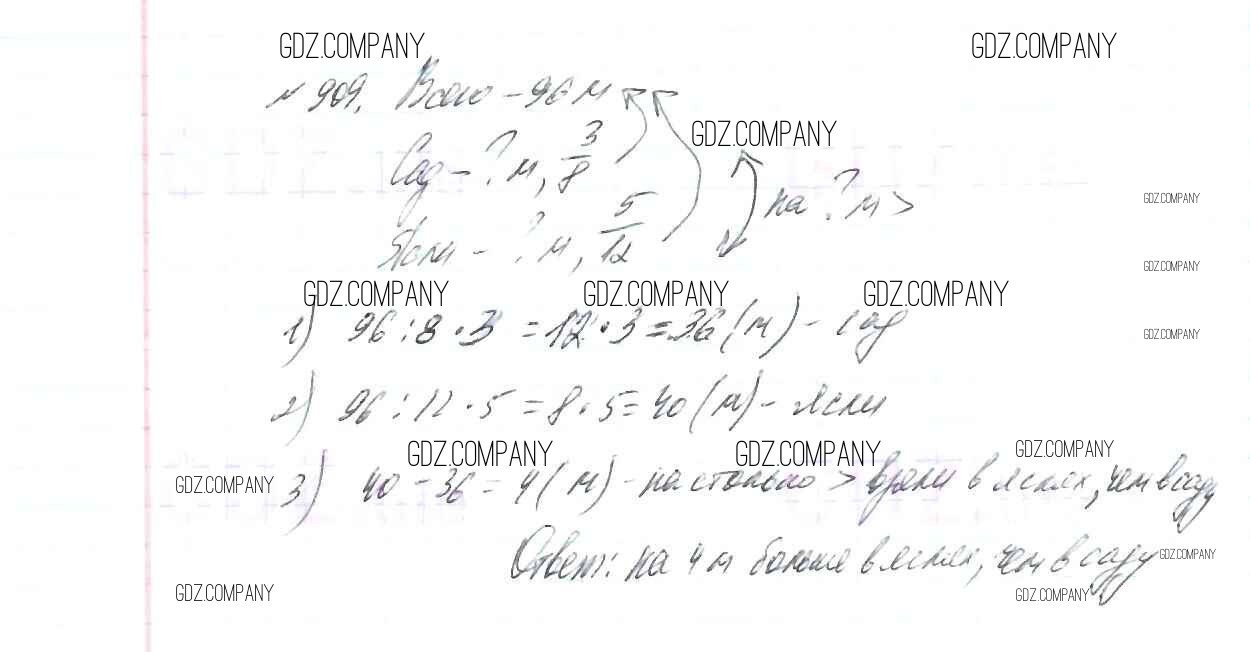 GDZ.COMPANY GDZ.COMPANY
№ 909. Всего – 96 м
GDZ.COMPANY
Сад – ? м, 3/8
на ? м >
GDZ.COMPANY
Ясли – ? м, 5/12
GDZ.COMPANY
GDZ.COMPANY GDZ.COMPANY GDZ.COMPANY
1) 96 : 8 · 3 = 12 · 3 = 36 (м) – сад
GDZ.COMPANY
2) 96 : 12 · 5 = 8 · 5 = 40 (м) – ясли
GDZ.COMPANY GDZ.COMPANY GDZ.COMPANY
GDZ.COMPANY
3) 40 – 36 = 4 (м) – настолько > взяли в яслях, чем в саду
Ответ: на 4 м больше в яслях, чем в саду
GDZ.COMPANY
GDZ.COMPANY GDZ.COMPANY